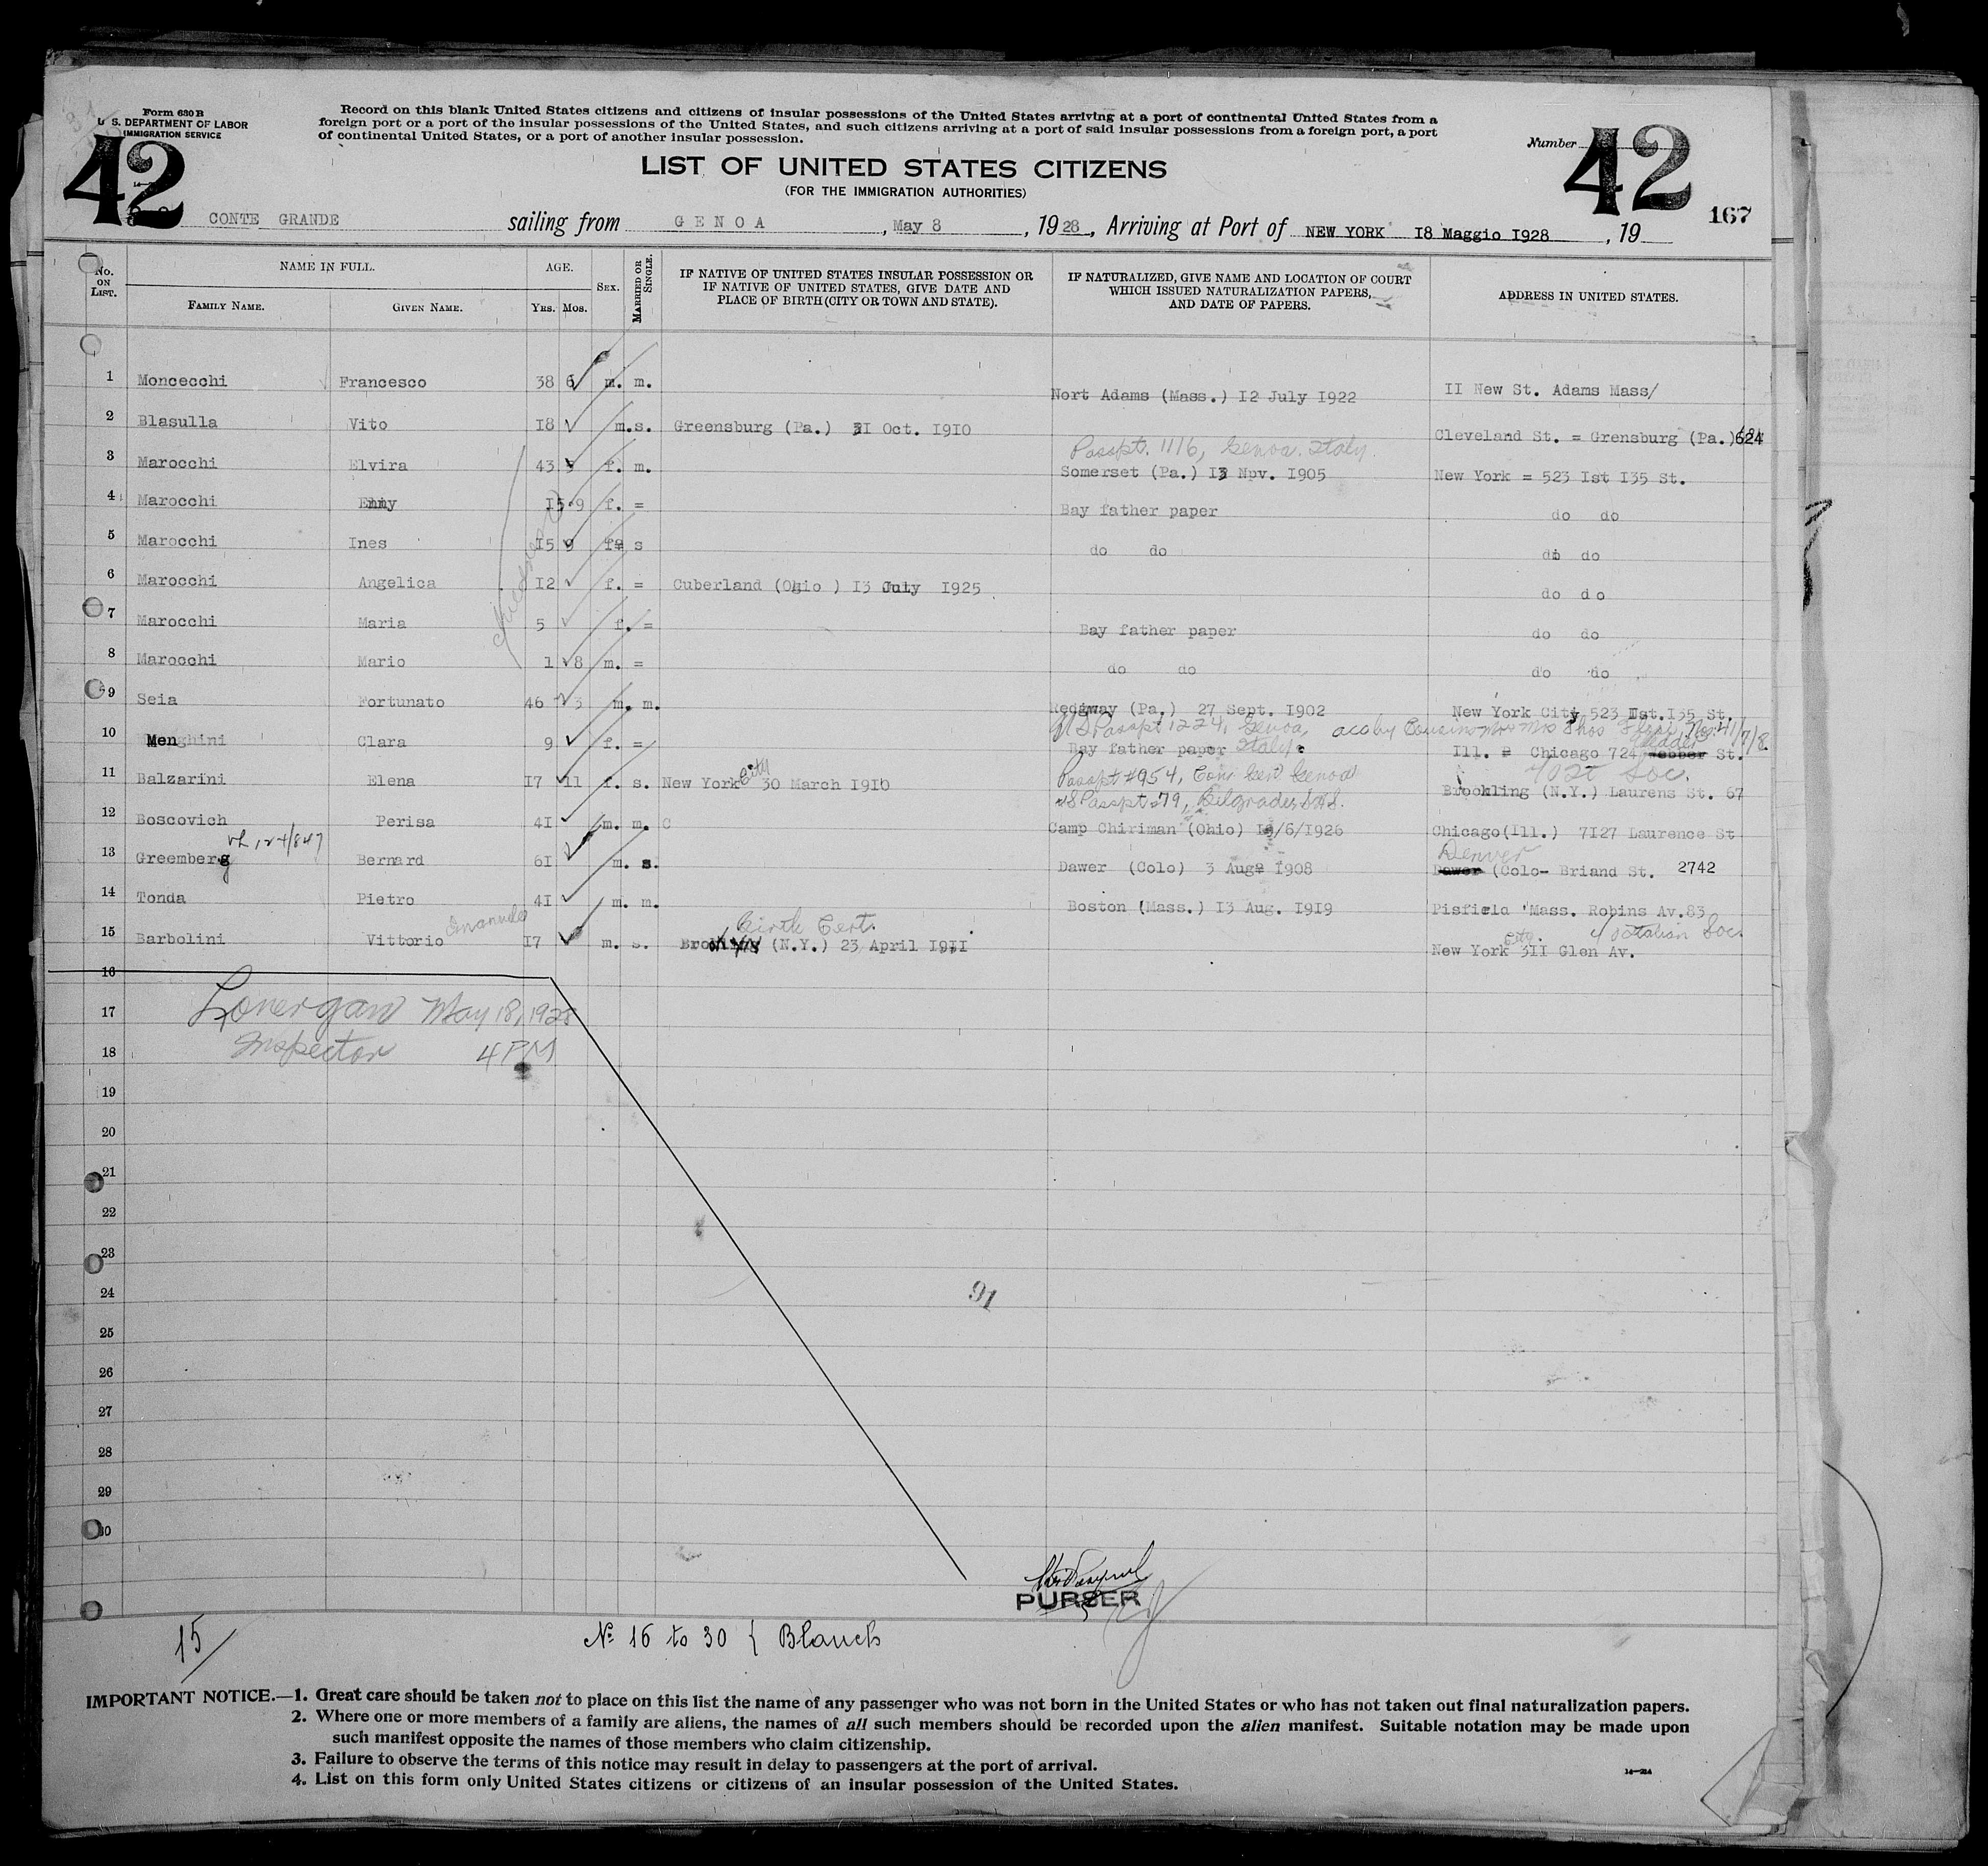 Form 630 B
U. S. DEPARTMENT OF LABOR
IMMIGRATION SERVICE
Record on this blank United States citizens and citizens of insular possessions of the United States arriving at a port of continental United States from a
foreign port or a port of the insular possessions of the United States, and such citizens arriving at a port of said insular possessions from a foreign port, a port
of continental United States, or a port of another insular possession.
Number
42
42
167
LIST OF UNITED STATES CITIZENS
(FOR THE IMMIGRATION AUTHORITIES)
CONTE GRANDE sailing from GENOA, May 8, 1928, Arriving at Port of NEW YORK 18 Maggio 1928, 19
No. ON LIST.
NAME IN FULL.
FAMILY NAME. GIVEN NAME.
AGE.
YRS. MOS.
SEX.
MARRIED OR SINGLE.
IF NATIVE OF UNITED STATES INSULAR POSSESSION OR
IF NATIVE OF UNITED STATES, GIVE DATE AND
PLACE OF BIRTH (CITY OR TOWN AND STATE).
IF NATURALIZED, GIVE NAME AND LOCATION OF COURT
WHICH ISSUED NATURALIZATION PAPERS,
AND DATE OF PAPERS.
ADDRESS IN UNITED STATES.
1 Moncecchi Francesco 38 6 m. m. Nort Adams (Mass.) I2 July I922 II New St. Adams Mass/
2 Blasulla Vito I8 m.s. Greensburg (Pa.) 3I Oct. I9I0 Cleveland St. = Grensburg (Pa.) 624
Passpt. 1116, Genoa. Italy.
3 Marocchi Elvira 43 f. m. Somerset (Pa.) I3 Npv. I905 New York = 523 Ist I35 St.
4 Marocchi Emmy I5 9 f. = Bay father paper do do
5 Marocchi Ines I5 9 s do do do do
6 Marocchi Angelica I2 f. = Cuberland (Ohio ) I3 July I925 do do
7 Marocchi Maria 5 f. = Bay father paper do do
8 Marocchi Mario 1 8 m. = do do do do
9 Seia Fortunato 46 3 m. m. Redgway (Pa.) 27 Sept. I902 New York City 523 Est. I35 St.
US Passpt 1224, Genoa, Italy
10 Menghini Clara 9 f. = Bay father paper Ill. Chicago 724 St.
Passpt #954, Con Gen Genoa
11 Balzarini Elena I7 11 f. s. New York City 30 March I9I0 Brookling (N.Y.) Laurens St. 67
US Passpt 79, Belgrade, S.H.S.
12 Boscovich Perisa 4I m. m. Camp Chiriman (Ohio) /6/I926 Chicago(Ill.) 7I27 Laurence St
13 Greemberg Bernard 6I m. s. Dawer (Colo) 3 Aug I908 Denver (Colo- Briand St. 2742
14 Tonda Pietro 4I m. m. Boston (Mass.) I3 Aug. I9I9 Pisfield Mass. Robins Av.83
Birth Cert.
4 Italian Soc.
15 Barbolini Vittorio I7 m. s. (N.Y.) 23 April I9II New York City. 3II Glen Av.
16
17
Lonergan May 18, 1928
18
Inspector 4 PM
19
20
21
22
23
24
91
25
26
27
28
29
30
PURSER
15
No 16 to 30 { Blanck
IMPORTANT NOTICE.—1. Great care should be taken not to place on this list the name of any passenger who was not born in the United States or who has not taken out final naturalization papers.
2. Where one or more members of a family are aliens, the names of all such members should be recorded upon the alien manifest. Suitable notation may be made upon
such manifest opposite the names of those members who claim citizenship.
3. Failure to observe the terms of this notice may result in delay to passengers at the port of arrival.
4. List on this form only United States citizens or citizens of an insular possession of the United States.